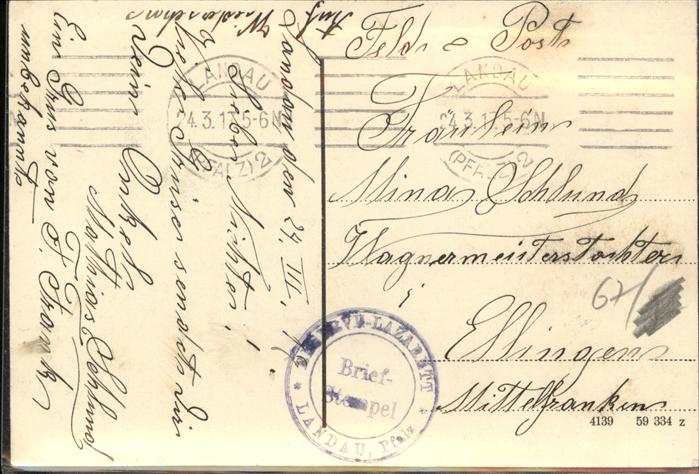 Feld-Post
Fräulein
Mina Schlund
Wagnermeisterstochter
Ellingen
Mittelfranken
67/
4139 59 334 z
RESERVE-LAZARETT
Brief-
Stempel
LANDAU, Pfalz
LANDAU
24.3.17.5-6N
(PFALZ) 2
LANDAU
24.3.17.5-6N
(PFALZ) 2
Landau den 24. III. 17
Liebe Nichte!
Viele Grüsse sendet Dir
Dein Onkel
Mathias Schlund
Ein Grus von
unbekannt
Auf Wiedersehen